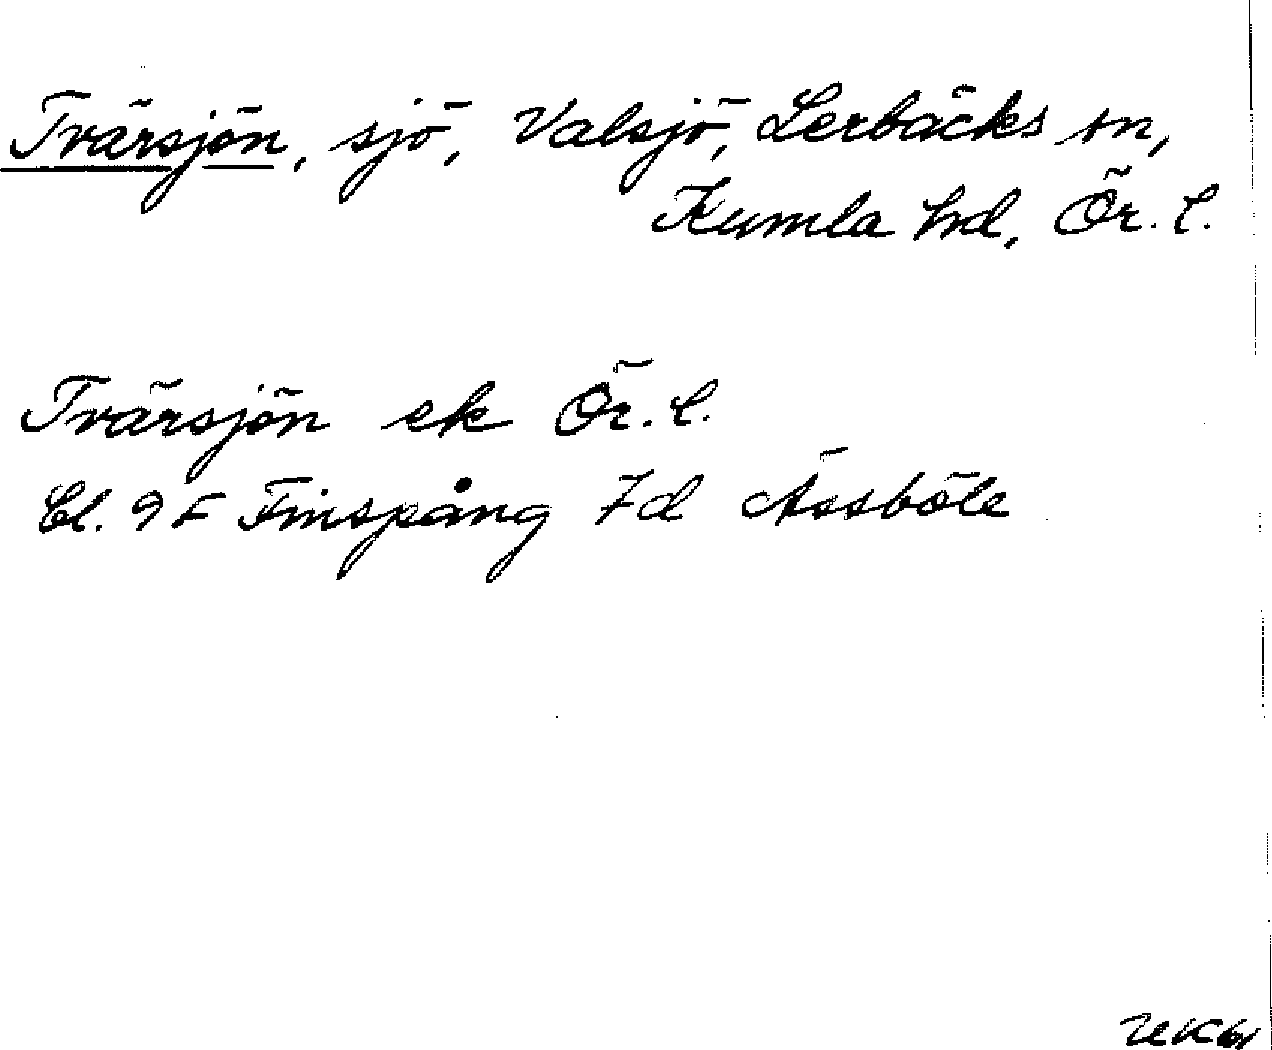 Tvärsjön, sjö, Valsjö, Lerbäcks sn,
Kumla hd, Ör. l.
Tvärsjön ek Ör. l.
Bl. 9 F Finspång 7d Åssböle